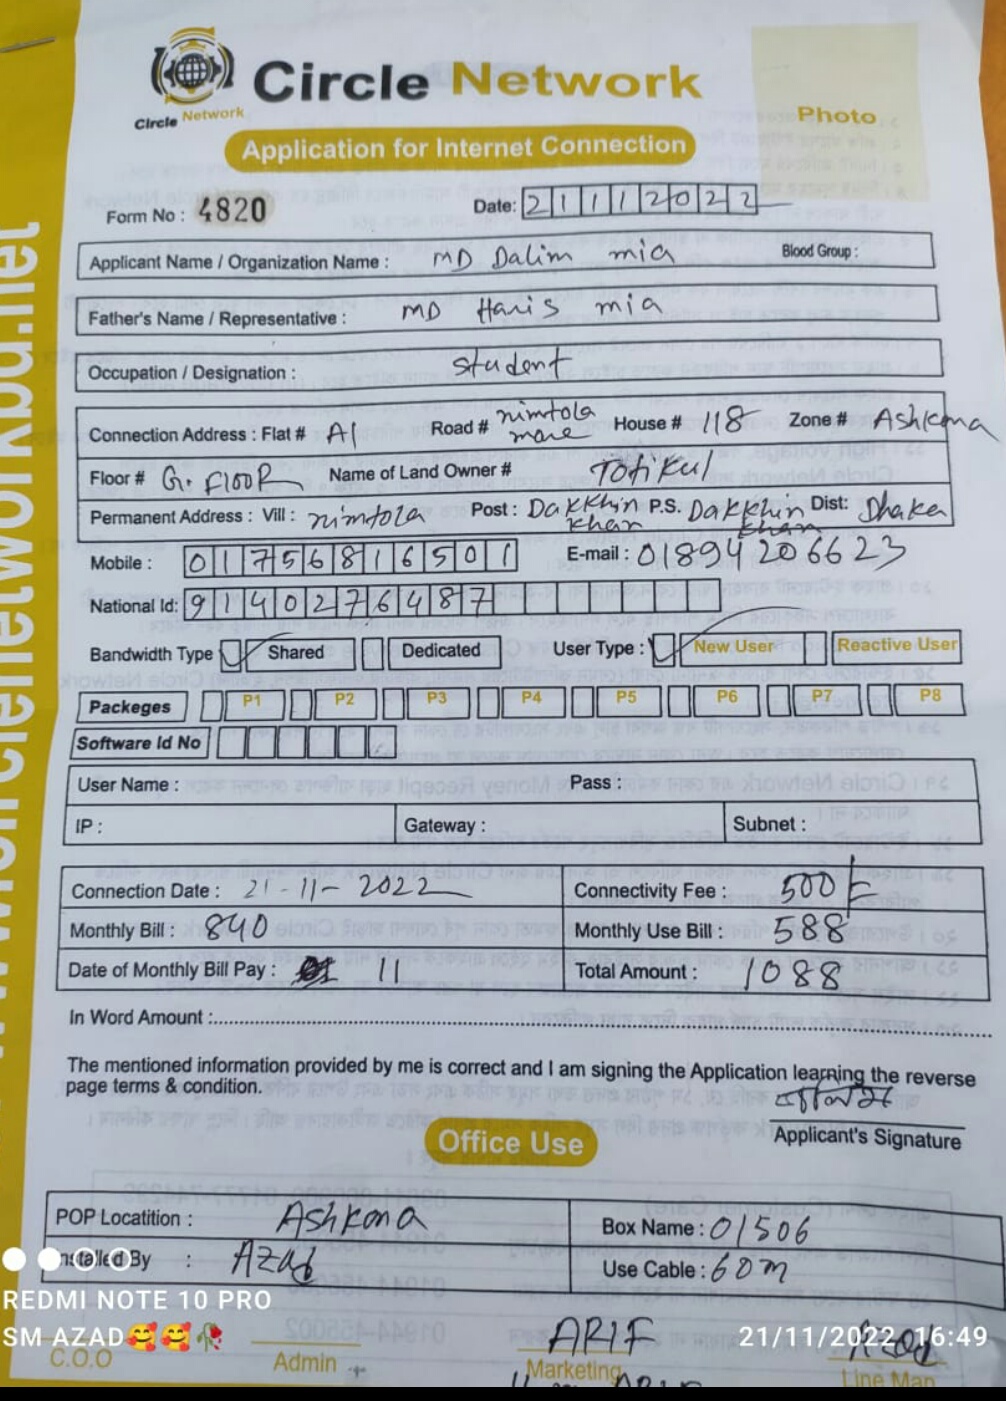 Circle Network
Circle Network
Photo
Application for Internet Connection
Form No : 4820
Date: 21112022
Applicant Name / Organization Name : MD Dalim mia Blood Group :
Father's Name / Representative : MD Haris mia
Occupation / Designation : student
Connection Address : Flat # A1 Road # nimtola more House # 118 Zone # Ashkona
Floor # G. FlooR Name of Land Owner # Tofikul
Permanent Address : Vill : nimtola Post : Dakkhin khan P.S. Dakkhin khan Dist: Dhaka
Mobile : 01756816501 E-mail : 01894206623
National Id: 9140276487
Bandwidth Type Shared Dedicated User Type : New User Reactive User
Packeges P1 P2 P3 P4 P5 P6 P7 P8
Software Id No
User Name : Pass :
IP : Gateway : Subnet :
Connection Date : 21-11-2022 Connectivity Fee : 500
Monthly Bill : 840 Monthly Use Bill : 588
Date of Monthly Bill Pay : 11 Total Amount : 1088
In Word Amount :
The mentioned information provided by me is correct and I am signing the Application learning the reverse
page terms & condition.
Applicant's Signature
Office Use
POP Locatition : Ashkona Box Name : 01506
Installed By : Azad Use Cable : 60m
REDMI NOTE 10 PRO
SM AZAD🥰🥰🥀 ARIF 21/11/2022 16:49
C.O.O Admin Marketing Azad Line Man
ARIF